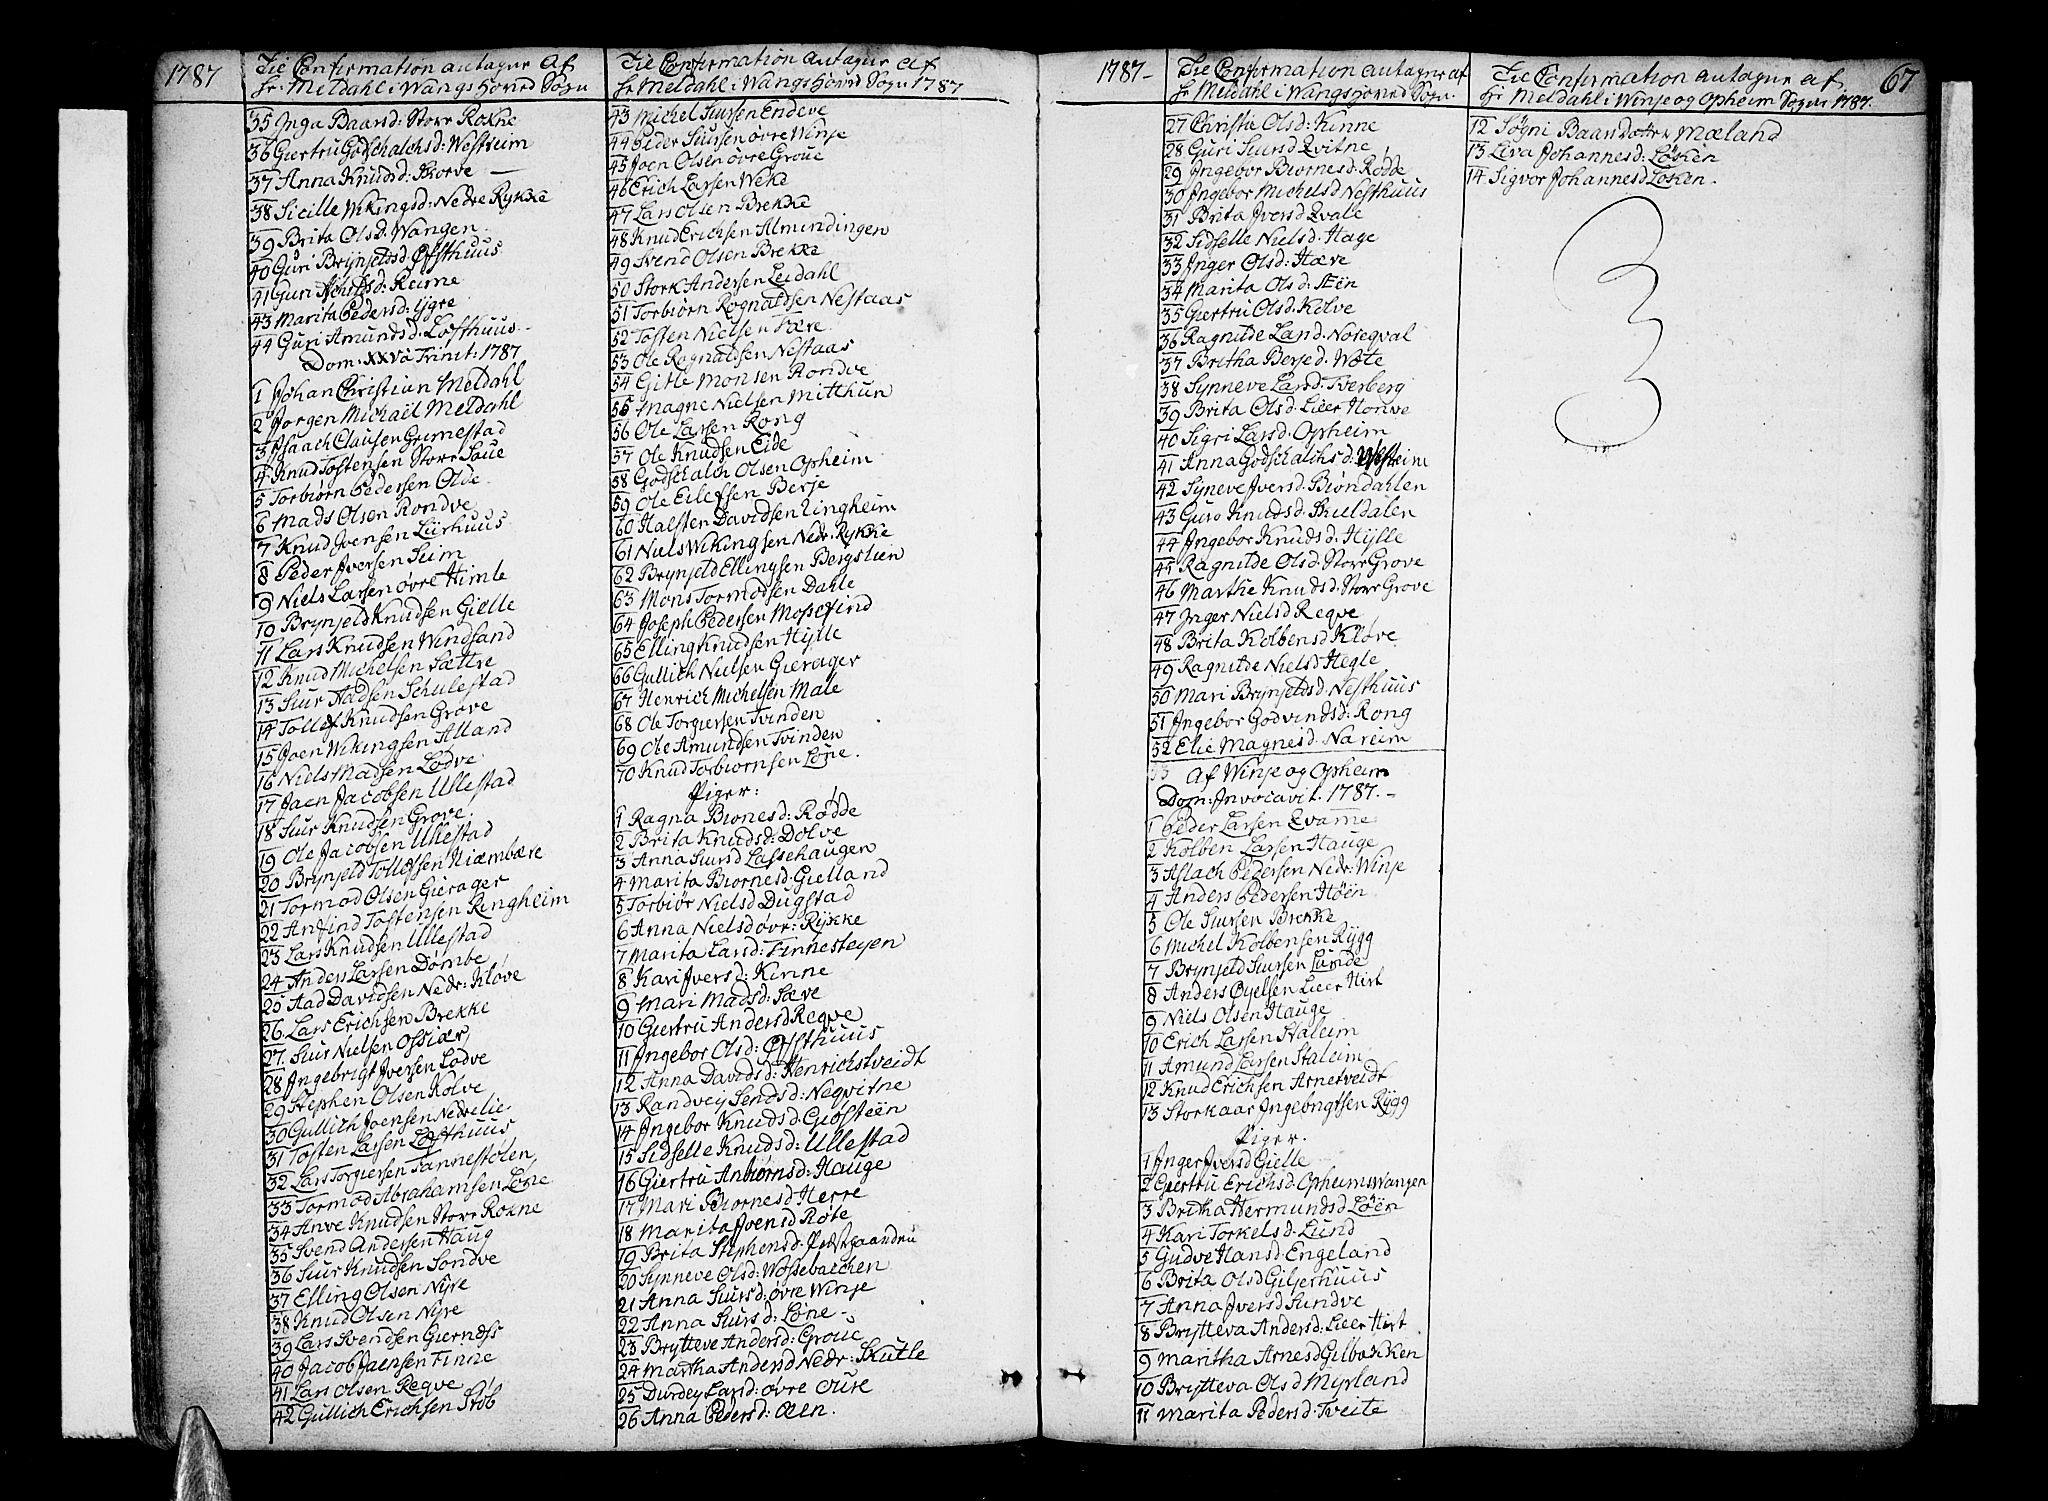 1787
Til Confirmation antagne Af
Hr: Meldahl i Wangs Hoved Sogn
35 Inga Baarsd: Store Rokne
36 Giertru Godschalchsd: Westreim
37 Anna Knudsd: Skorve —
38 Sicille Wikingsd: Nedre Rykke
39 Brita Olsd: Wangen
40 Guri Brynjelds Øfsthuus
41 Guri Reime
43 Marita Pedersd: Ygre
44 Guri Amundsd: Lofthuus
Dom: XXV a Trinit: 1787
1 Johan Christian Meldahl
2 Jørgen Michael Meldahl
3 Isaach Clausen Grimestad
4 Knud Tostensen Store Saue
5 Torbiørn Pedersen Olde
6 Mads Olsen Rondve
7 Knud Jvensen Liirhuus
8 Peder Iversen Suim
9 Niels Larsen øvre Himle
10 Brynjeld Knudsen Gielle
11 Lars Knudsen Windsand
12 Knud Michelsen Sættre
13 Siur Aadsen Schulestad
14 Tollef Knudsen Grove
15 Joen Wikingsen Alland
16 Niels Madsen Lødve
17 Jaen Jacobsen Ullestad
18 Siur Knudsen Grove
19 Ole Jacobsen Ullestad
20 Brynjeld Tollefsen Hiæmbære
21 Tormod Olsen Gierager
22 Anfind Tostensen Ringheim
23 Lars Knudsen Ullestad
24 Anders Larsen Dømbe
25 Aad Davidsen Nedr: Kløve
26 Lars Erichsen Brekke
27 Siur Nielsen Ossiær
28 Ingebrigt Iversen Lødve
29 Stephen Olsen Kolve
30 Gullich Joensen Nedrelie
31 Tosten Larsen Lofthuus
32 Lars Torgiersen Tannestølen
33 Tormod Abrahamsen Løne
34 Anve Knudsen Store Rokne
35 Svend Andersen Haug
36 Siur Knudsen Sondve
37 Elling Olsen Nyre
38 Knud Olsen Nyre
39 Lars Svendsen Giernæss
40 Jacob Jaensen Finne
41 Lars Olsen Reqve
42 Gullich Erichsen Støb
Til Confirmation antagne af
Hr Meldahl i Wangs Hoved Sogn 1787
43 Michel Siursen Endeve
44 Peder Siursen øvre Winje
45 Joen Olsen øvre Groue
46 Erich Larsen Weke
47 Lars Olsen Brekke
48 Knud Erichsen Almindingen
49 Svend Olsen Brekke
50 Stork Andersen Leidahl
51 Torbiørn Rognaldsen Nestaas
52 Tosten Nielsen Fære
53 Ole Ragnaldsen Nestaas
54 Gitle Monsen Rondve
55 Magne Nielsen Mitthun
56 Ole Larsen Rong
57 Ole Knudsen Eide
58 Godschalch Olsen Opheim
59 Ole Eilefsen Berje
60 Halsten Davidsen Lingheim
61 Niels Wikingsen Nedr: Rykke
62 Brynjeld Ellingsen Bergslien
63 Mons Tormodsen Dahle
64 Joseph Pedersen Mossefind
65 Elling Knudsen Hylle
66 Gullich Nielsen Gierager
67 Henrich Michelsen Male
68 Ole Torgiersen Tvinden
69 Ole Amundsen Tvinden
70 Knud Torbiørnsen Løne.
Piger:
1 Ragna Biornesd: Rødde
2 Brita Knudsd: Dolve
3 Anna Siursd Lassehaugen
4 Marita Biornesd: Gielland
5 Torbiør Nielsd Dugstad
6 Anna Nielsd øvr: Rykke
7 Marita Larsd: Finnesteyen
8 Kari Iversd: Kinne
9 Mari Madsd: Sæve
10 Giertru Andersd Reqve
11 Ingebor Olsd: Øfsthuus
12 Anna Davidsd: Henrichstveidt
13 Randvey Sendsd: Neqvitne
14 Ingebor Knudsd: Giøsteën
15 Sidselle Knudsd: Ullestad
16 Giertru Anbiornsd: Hauge
17 Mari Biornesd Herre
18 Marita Joensd Røte
19 Brita Stephensd:
20 Synneve Olsd: Wossebakchen
21 Anna Siursd: øvre Winje
22 Anna Siursd: Løne
23 Brytteve Andersd: Groue
24 Martha Andersd Nedr: Skutle
25 Durdey Larsd: øvre
26 Anna Pedersd: Øen.
1787 —
Til Confirmation antagne af
Hr Meldahl i Wangs Hoved Sogn
27 Christie Olsd: Kinne
28 Guri Siursd Qvitne
29 Ingebor Biornesd: Rødde
30 Ingebor Michelsd Nesthuus
31 Brita Iversd Qvale
32 Sidselle Nielsd: Hage
33 Inger Olsd: Hæve
34 Marita Olsd:
35 Giertru Olsd: Kolve
36 Ragnilde Larsd: Noseqval
37 Britha Bersed: Wæte
38 Synneve Larsd: Tverberg
39 Brita Olsd: Lieer Honve
40 Sigri Larsd: Opheim
41 Anna Godschalchsd: Westreim
42 Synneve Iversd: Biøndahlen
43 Guro Knudsd: Skuldalen
44 Ingebor Knudsd: Hylle
45 Ragnilde Olsd: Store Grove
46 Marthe Knudsd: Store Grove
47 Inger Nielsd Reqve
48 Brita Kolbensd Kløve
49 Ragnilde Nielsd Hegle
50 Mari Brynjeldsd: Nesthuus
51 Ingebor Godvindsd: Rong
52 Elie Magnesd: Nareim
53 Af Winje og Opheim
Dom: Invocavit. 1787. —
1 Peder Larsen Qvarne
2 Kolben Larsen Hauge
3 Aslach Pedersen Nedr: Winje
4 Anders Pedersen Høen
5 Ole Siursen Brekke
6 Michel Kolbensen Rygg
7 Brynjeld Siursen Lunde
8 Anders Øyelsen Lieer Hirt
9 Niels Olsen Hauge
10 Erich Larsen Staleim
11 Amund Larsen Staleim
12 Knud Erichsen Arnetveidt
13 Storkaar Ingebrigtsen Rygg
Piger.
1 Inger Iversd Gielle
2 Giertru Erichsd: Opheimswangen
3 Britha Hermundsd Løen
4 Kari Torkelsd: Lund
5 Gudve Hansd Engeland
6 Brita Olsd Giljerhuus
7 Anna Iversd Sundve
8 Brytteva Andersd: Lieer Hirt
9 Maritha Arnesd Gilbakken
10 Brytteva Olsd Myrland
11 Marita Pedersd: Tveite
Til Confirmation antagne af
Hr Meldahl i Winje og Opheim Sogne 1787.
67
12 Søgni Baarsdotter Mæland
13 Liva Johannesd: Løken
14 Sigvor Johannesd Løken.